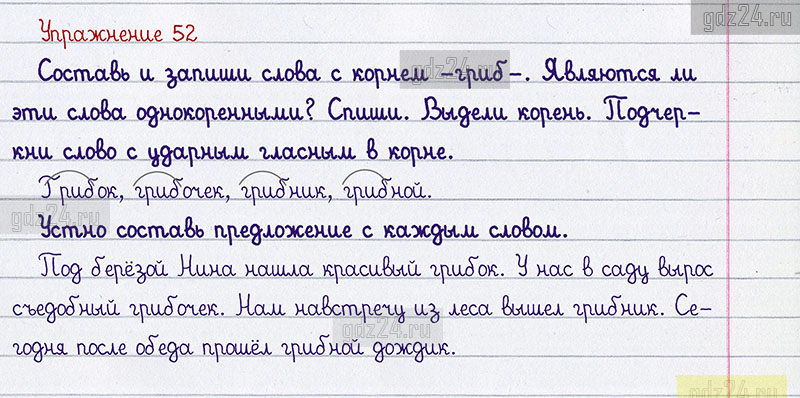 gdz24.ru
Упражнение 52
Составь и запиши слова с корнем -гриб-. Являются ли
gdz24.ru
эти слова однокоренными? Спиши. Выдели корень. Подчер-
кни слово с ударным гласным в корне.
Грибок, грибочек, грибник, грибной.
gdz24.ru
Устно составь предложение с каждым словом.
Под берёзой Нина нашла красивый грибок. У нас в саду вырос
съедобный грибочек. Нам навстречу из леса вышел грибник. Се-
gdz24.ru
годня после обеда прошёл грибной дождик.
gdz24.ru